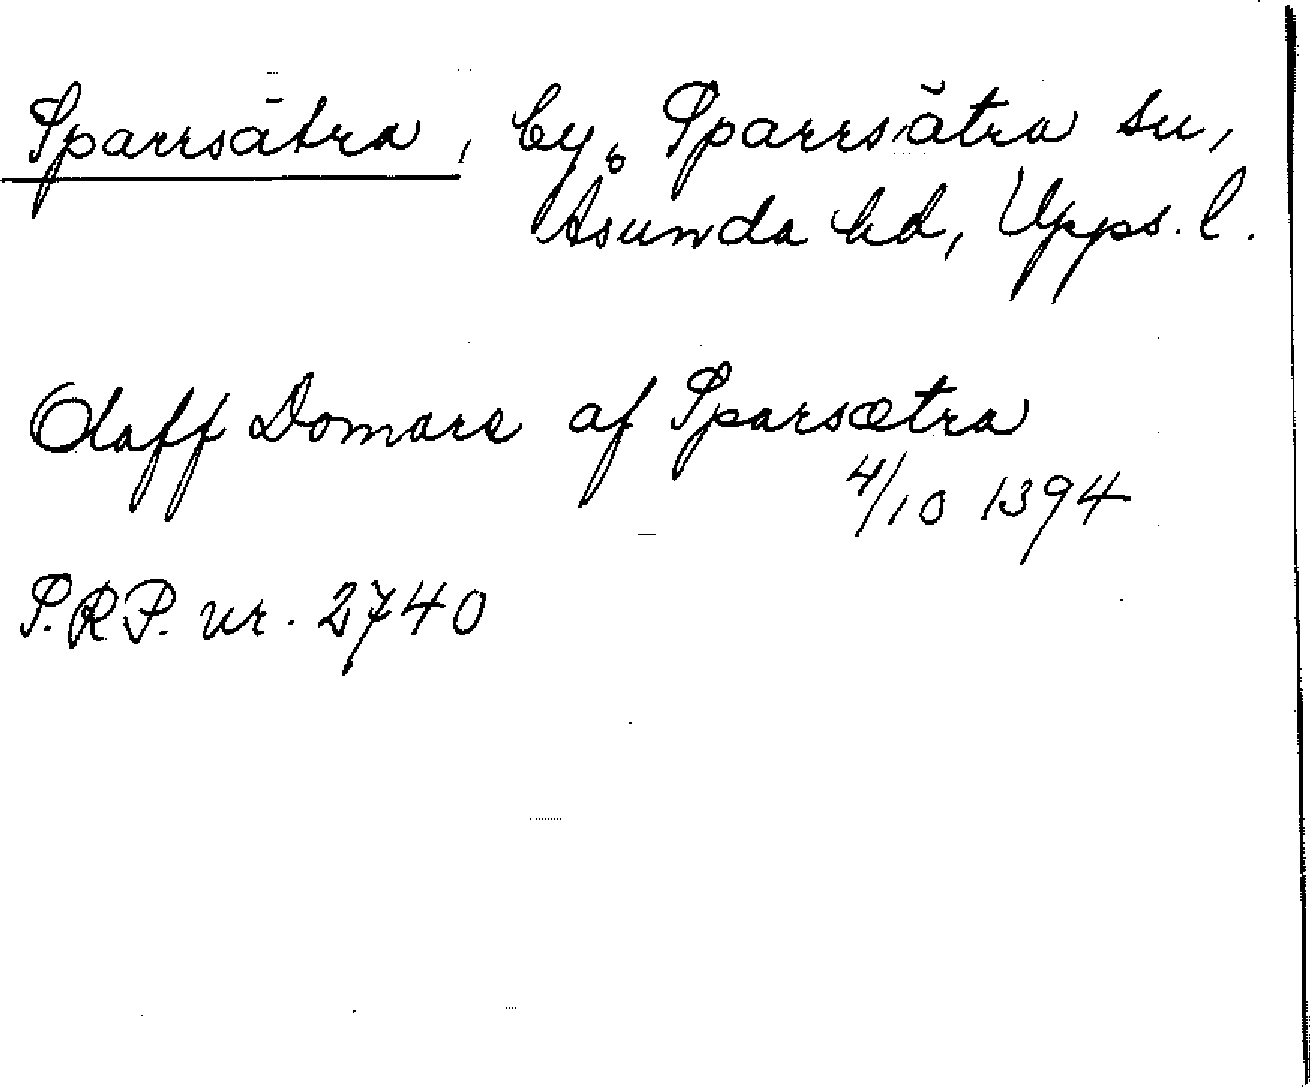 Sparrsätra, by, Sparrsätra sn,
Åsunda hd, Upps. l.
Olaff Domare af Sparsætra
4/10 1394
S.R.P. nr. 2740